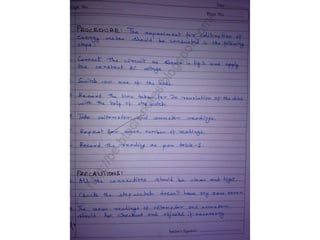 Page No.
PROCEDURE: The experiment for calibration of
energy meter should be conducted in the following
steps:
Connect the circuit as shown in fig.1 and apply
the constant AC voltage.
Switch on one of the load.
Record the time taken for 20 revolution of the disc
with the help of stop watch.
Take voltmeter and ammeter readings.
Repeat for more number of readings.
Record the reading as per table-1.
PRECAUTIONS:
All the connections should be clean and tight.
Check the stop watch doesn't have any zero error.
The zero readings of voltmeter and ammeter
should be checked and adjusted if necessary.
Teacher's Signature